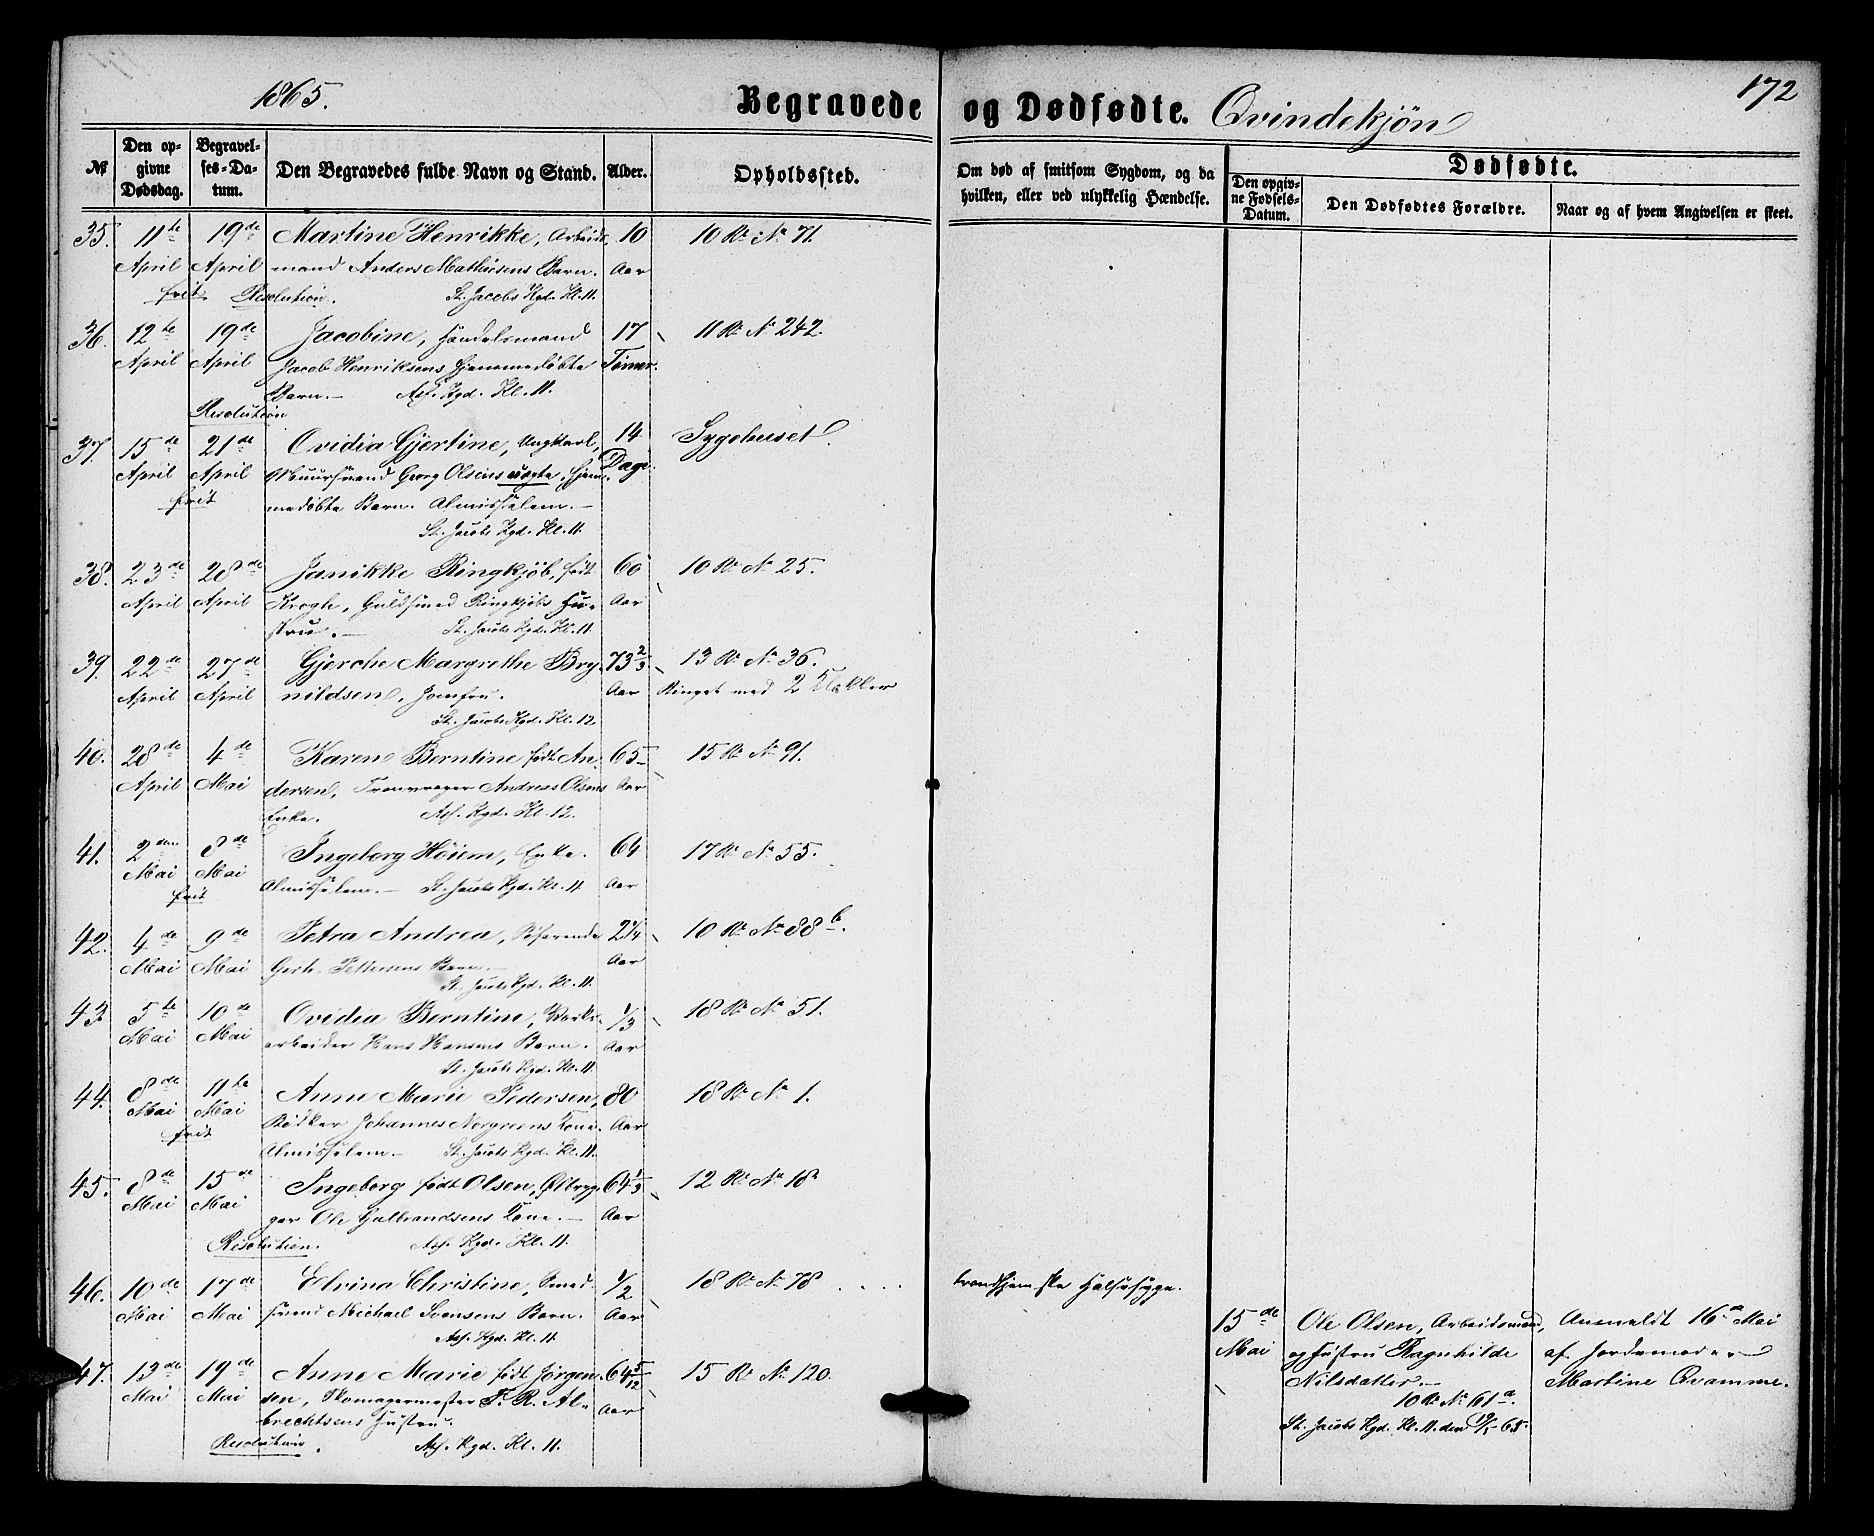 1865.
Begravede og Dødfødte. Qvindekjøn
172
№
Den opgivne Dødsdag.
Begravelses-Datum.
Den Begravedes fulde Navn og Stand.
Alder.
Opholdssted.
Om død af smitsom Sygdom, og da hvilken, eller ved ulykkelig Hændelse.
Dødfødte.
Den opgivne Fødsels-Datum.
Den Dødfødtes Forældre.
Naar og af hvem Angivelsen er skeet.
35. 11te 19de Martine Henrikke, Arbeids- 10 10 R. No 71.
April April mand Anders Mathisens Barn. Aar
frit Resolution. St. Jacobs Kgd. Kl. 11.
36. 12te 19de Jacobine, Handelsmand 17 11 R. No 242.
April April Jacob Henriksens hjemmedøbte Timer.
Barn.- Ass. Kgd. Kl. 11.
Resolution
37. 15de 21de Ovidia Gjertine, Ungkarl, 14 Sygehuset.
April April Muursvend Georg Olsens uægte, hjem- Dage.
frit medøbte Barn. Almisselem.-
St. Jacobs Kgd. Kl. 11.
38. 23de 28de Janikke Ringkjøb, født 60 10 R. No 25.
April April Krogh, Guldsmed Ringkjøbs Hu- Aar
stru.- St. Jacobs Kgd. Kl. 11.
39. 22de 27de Gjerche Margrethe Bry- 73 2/3 13 R. No 36.
April April nildsen, Jomfru. Aar Ringet med 2 Klokker
St. Jacobs Kgd. Kl. 12.
40. 28de 4de Karen Berntine født An- 65 15 R. No 91.
April Mai dersen, Andreas Olsens Aar
Enke. Ass. Kgd. Kl. 12.
41. 2den 8de Ingeborg Høiem, Enke. 64 17 R. No 55.
Mai Mai Almisselem.- St. Jacobs Kgd. Kl. 11 Aar
frit
42. 4de 9de Petra Andrea, Søfarende 2 1/4 10 R. No 88 b.
Mai Mai Gerh. Pettersens Barn.- Aar
St. Jacobs Kgd. Kl. 11.
43. 5te 10de Ovidia Berntine, Værks- 1/3 18 R. No 51.
Mai Mai arbeider Hans Hansens Barn. Aar
St. Jacobs Kgd. Kl. 11.
44. 8de 11te Anne Marie Pedersen, 80 18 R. No 1.
Mai Mai Bødker Johannes Norgreens Kone. Aar
frit Almisselem.- St. Jacobs Kgd. Kl. 11.
45. 8de 15de Ingeborg født Olsen, Ølbryg- 64 1/3 12 R. No 18
Mai Mai ger Ole Gulbrandsens Kone.- Aar
Resolution. Ass. Kgd. Kl. 11.
46. 10de 17de Elvina Christine, Smed- 1/2 18 R. No 78 . . . trondhjemske Halssyge.
Mai Mai svend Michael Svensens Barn. Aar
Ass. Kgd. Kl. 11.
47. 13de 19de Anne Marie født Jørgen- 64 5/12 15 R. No 120.
Mai Mai sen, Skomagermester F. R. Al- Aar
brechtsens Hustru.
Resolution. Ass. Kgd. Kl. 11.
15de Ole Olsen, Arbeidsmand, Anmeldt 16de Mai
Mai og Hustru Ragnhilde af Jordemoder
Nilsdatter.- Martine Qvamme.
10 R. No 61 a.
St. Jacobs Kgd. Kl. 11. den 19/5 65.